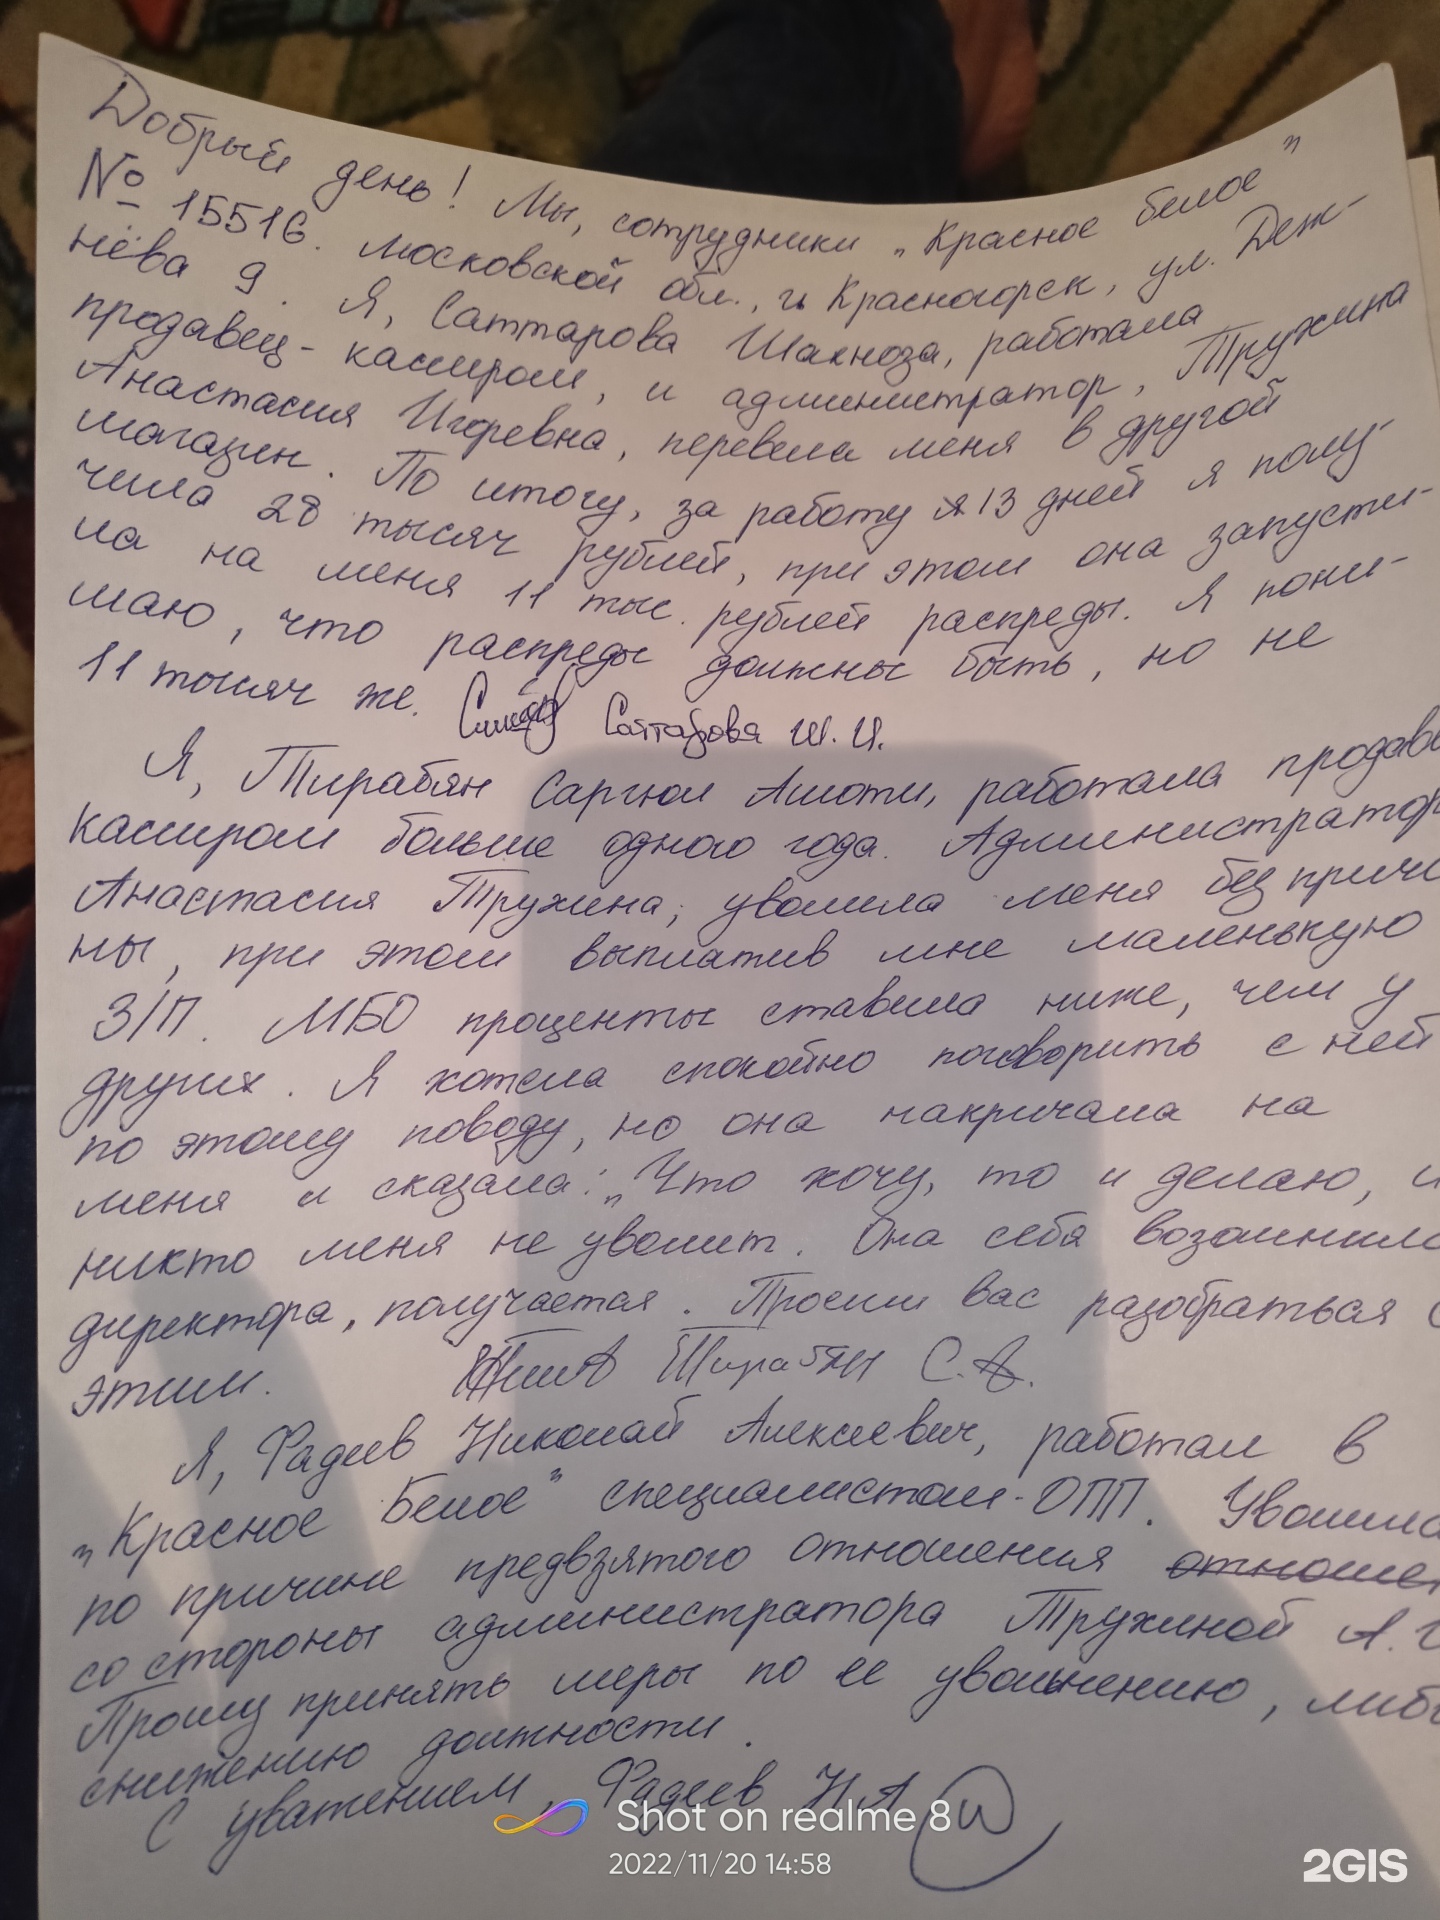 Добрый день! Мы, сотрудники „Красное белое"
№ 15516. Московской обл., г. Красногорск, ул. Деж-
нёва 9. Я, Саттарова Шахноза, работала
продавец-кассиром, и администратор, Тружина
Анастасия Игоревна, перевела меня в другой
магазин. По итогу, за работу я 13 дней я полу-
чила 28 тысяч рублей, при этом она запусти-
ла на меня 11 тыс. рублей распреды. Я пони-
маю, что распреды должны быть, но не
11 тысяч же. Саттарова Ш. И.
Я, Тирабян Саргюл Ашоти, работала продавц
кассиром больше одного года. Администратор
Анастасия Тружина, уволила меня без причи
ны, при этом выплатив мне маленькую
З/П. МБО проценты ставила ниже, чем у
других. Я хотела спокойно поговорить с ней
по этому поводу, но она накричала на
меня и сказала: „Что хочу, то и делаю, и
никто меня не уволит. Она себя возомнила
директора, получается. Просим вас разобраться с
этим. Тирабян С.А.
Я, Фадеев Николай Алексеевич, работал в
„Красное Белое" специалистом-ОПП. Уволила
по причине предвзятого отношения отношен
со стороны администратора Тружиной А.И
Прошу принять меры по ее увольнению, либо
снижению должности.
С уважением, Фадеев Н А
Shot on realme 8
2022/11/20 14:58
2GIS